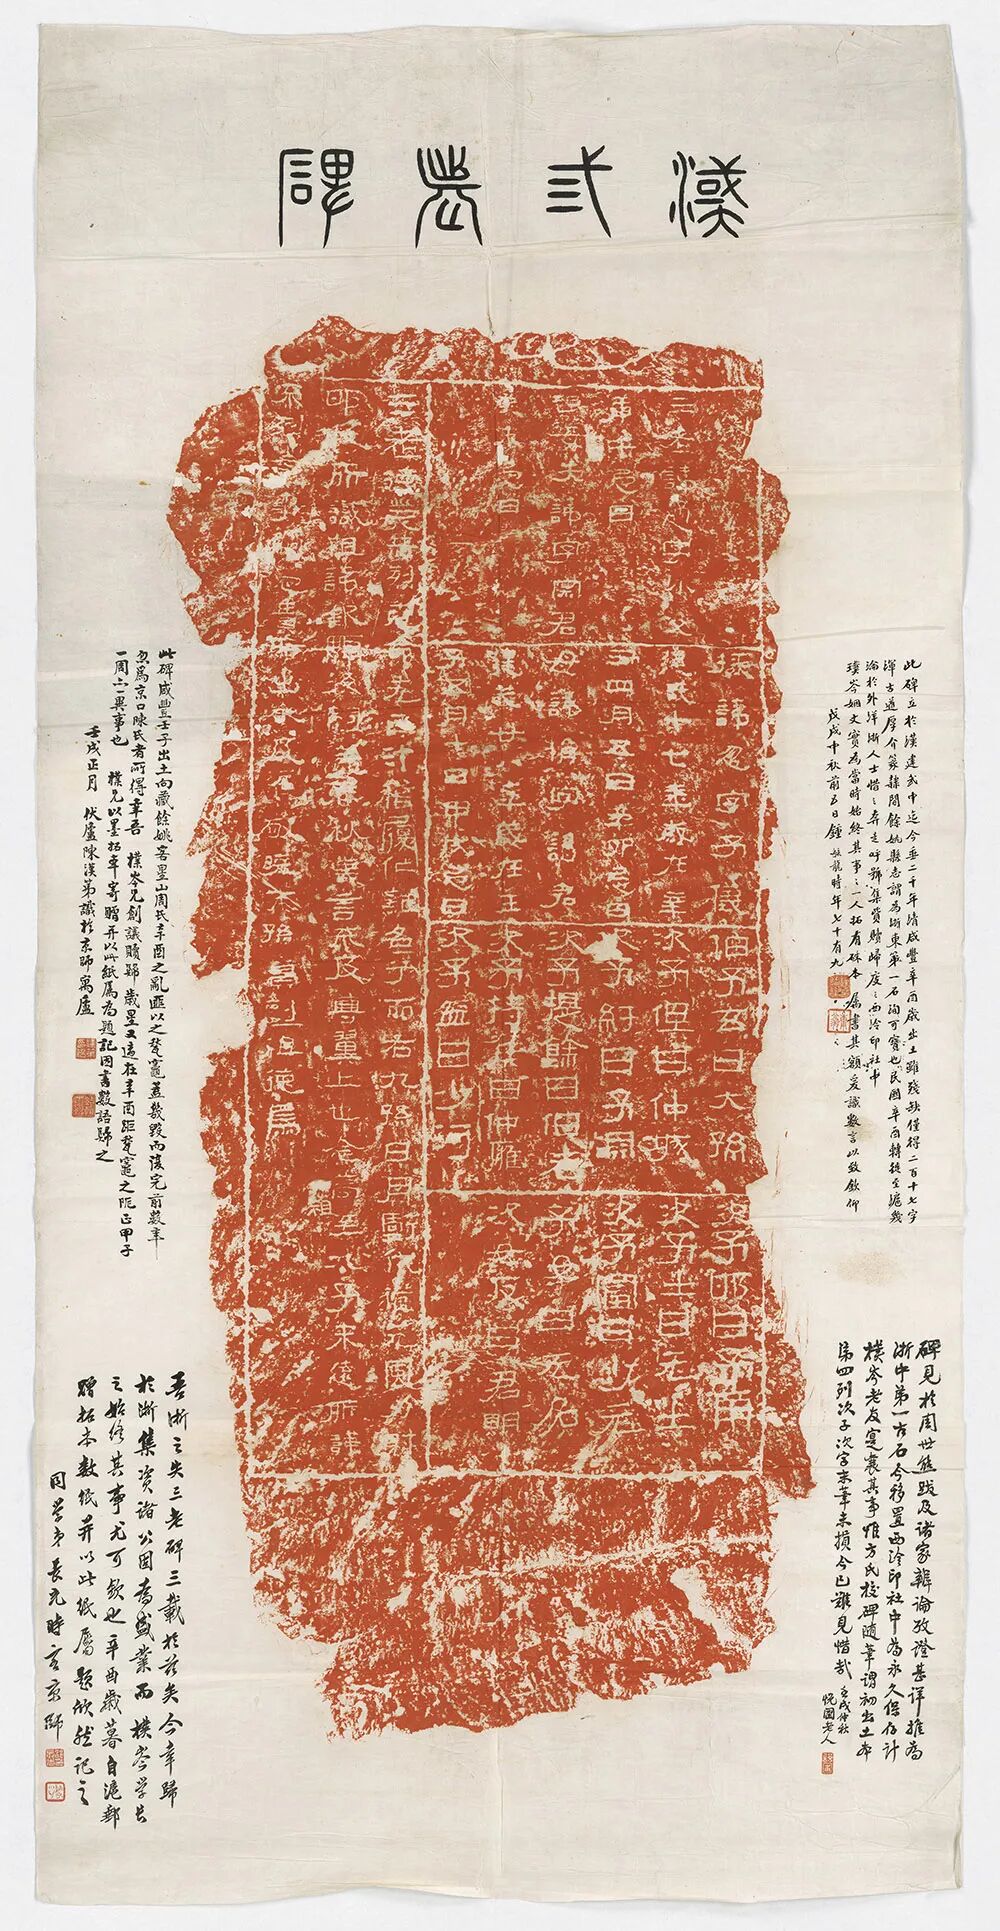 漢弎老碑
此碑立於漢建武中迄今垂二千年清咸豐辛酉歲出土雖殘缺僅得二百十七字
渾古遒厚介篆隸間餘姚縣志謂為浙東第一石洵可寶也民國辛酉轉徙至滬幾
淪於外洋浙人士惜之奔走呼號集貲贖歸庋之西泠印社中
璞岑姻丈實為當時始終其事之一人拓有硃本屬書其額爰識數言以致欽仰
戊戌中秋前五日鍾毓龍時年七十有九
碑見於周世熊跋及諸家辯論攷證甚詳推為
浙中第一古石今移置西泠印社中為永久保存計
樸岑老友寔襄其事惟方氏校碑隨筆謂初出土本
第四列次子次字末筆未損今已難見惜哉 壬戌仲秋
悅園老人
三老諱通字小父
庚午忌日
祖母失諱字宗君
癸未忌日
掾諱忽字子儀
建武十七年歲在辛
丑四月五日辛卯忌日
母諱捐字謁君
建武廿八年歲在壬
子五月十日甲戌忌日
伯子玄曰大孫
次子但曰仲城
次子紆曰子淵
次子提餘曰伯老
次子持侯曰仲雍
次子盆曰少河
次子邯曰子南
次子士曰元士
次子富曰少元
子女曰无名
次女反曰君明
三老德業赫烈克命先己汁稽履化難名兮而右九孫日月虧代猶元風力射
邈而不識祖諱欽顯後嗣蓋春秋義言不及尊翼上也念高祖九子未遠所諱
不列言事觸忌貴所出嚴及敬曉末孫冀副祖德焉
此碑咸豐壬子出土向藏餘姚客星山周氏辛酉之亂匪以之甃竈蓋幾毀而復完前數年
忽為京口陳氏者所得幸吾 樸岑兄創議贖歸歲星又適在辛酉距甃竈之阨正甲子
一周亦一異事也 樸兄以墨拓本寄贈并以此紙屬為題記因書數語歸之
壬戌正月 伏廬陳漢第識於京師寓廬
吾浙之失三老碑三載於茲矣今幸歸
於浙集資諸公固為盛業而樸岑學長
之始終其事尤可欽也辛酉歲暮自滬郵
贈拓本數紙并以此紙屬題欣然記之
同學弟時客京師